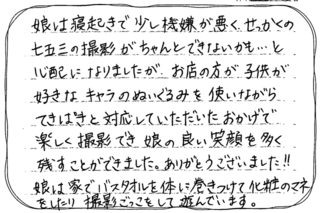 娘は寝起きで少し機嫌が悪く、せっかくの
七五三の撮影がちゃんとできないかも…と
心配になりましたが、お店の方が子供が
好きなキャラのぬいぐるみを使いながら
てきぱきと対応していただいたおかげで
楽しく撮影でき 娘の良い笑顔を多く
残すことができました。ありがとうございました!!
娘は家でバスタオルを体に巻きつけて化粧のマネ
をしたり 撮影ごっこをして遊んでいます。